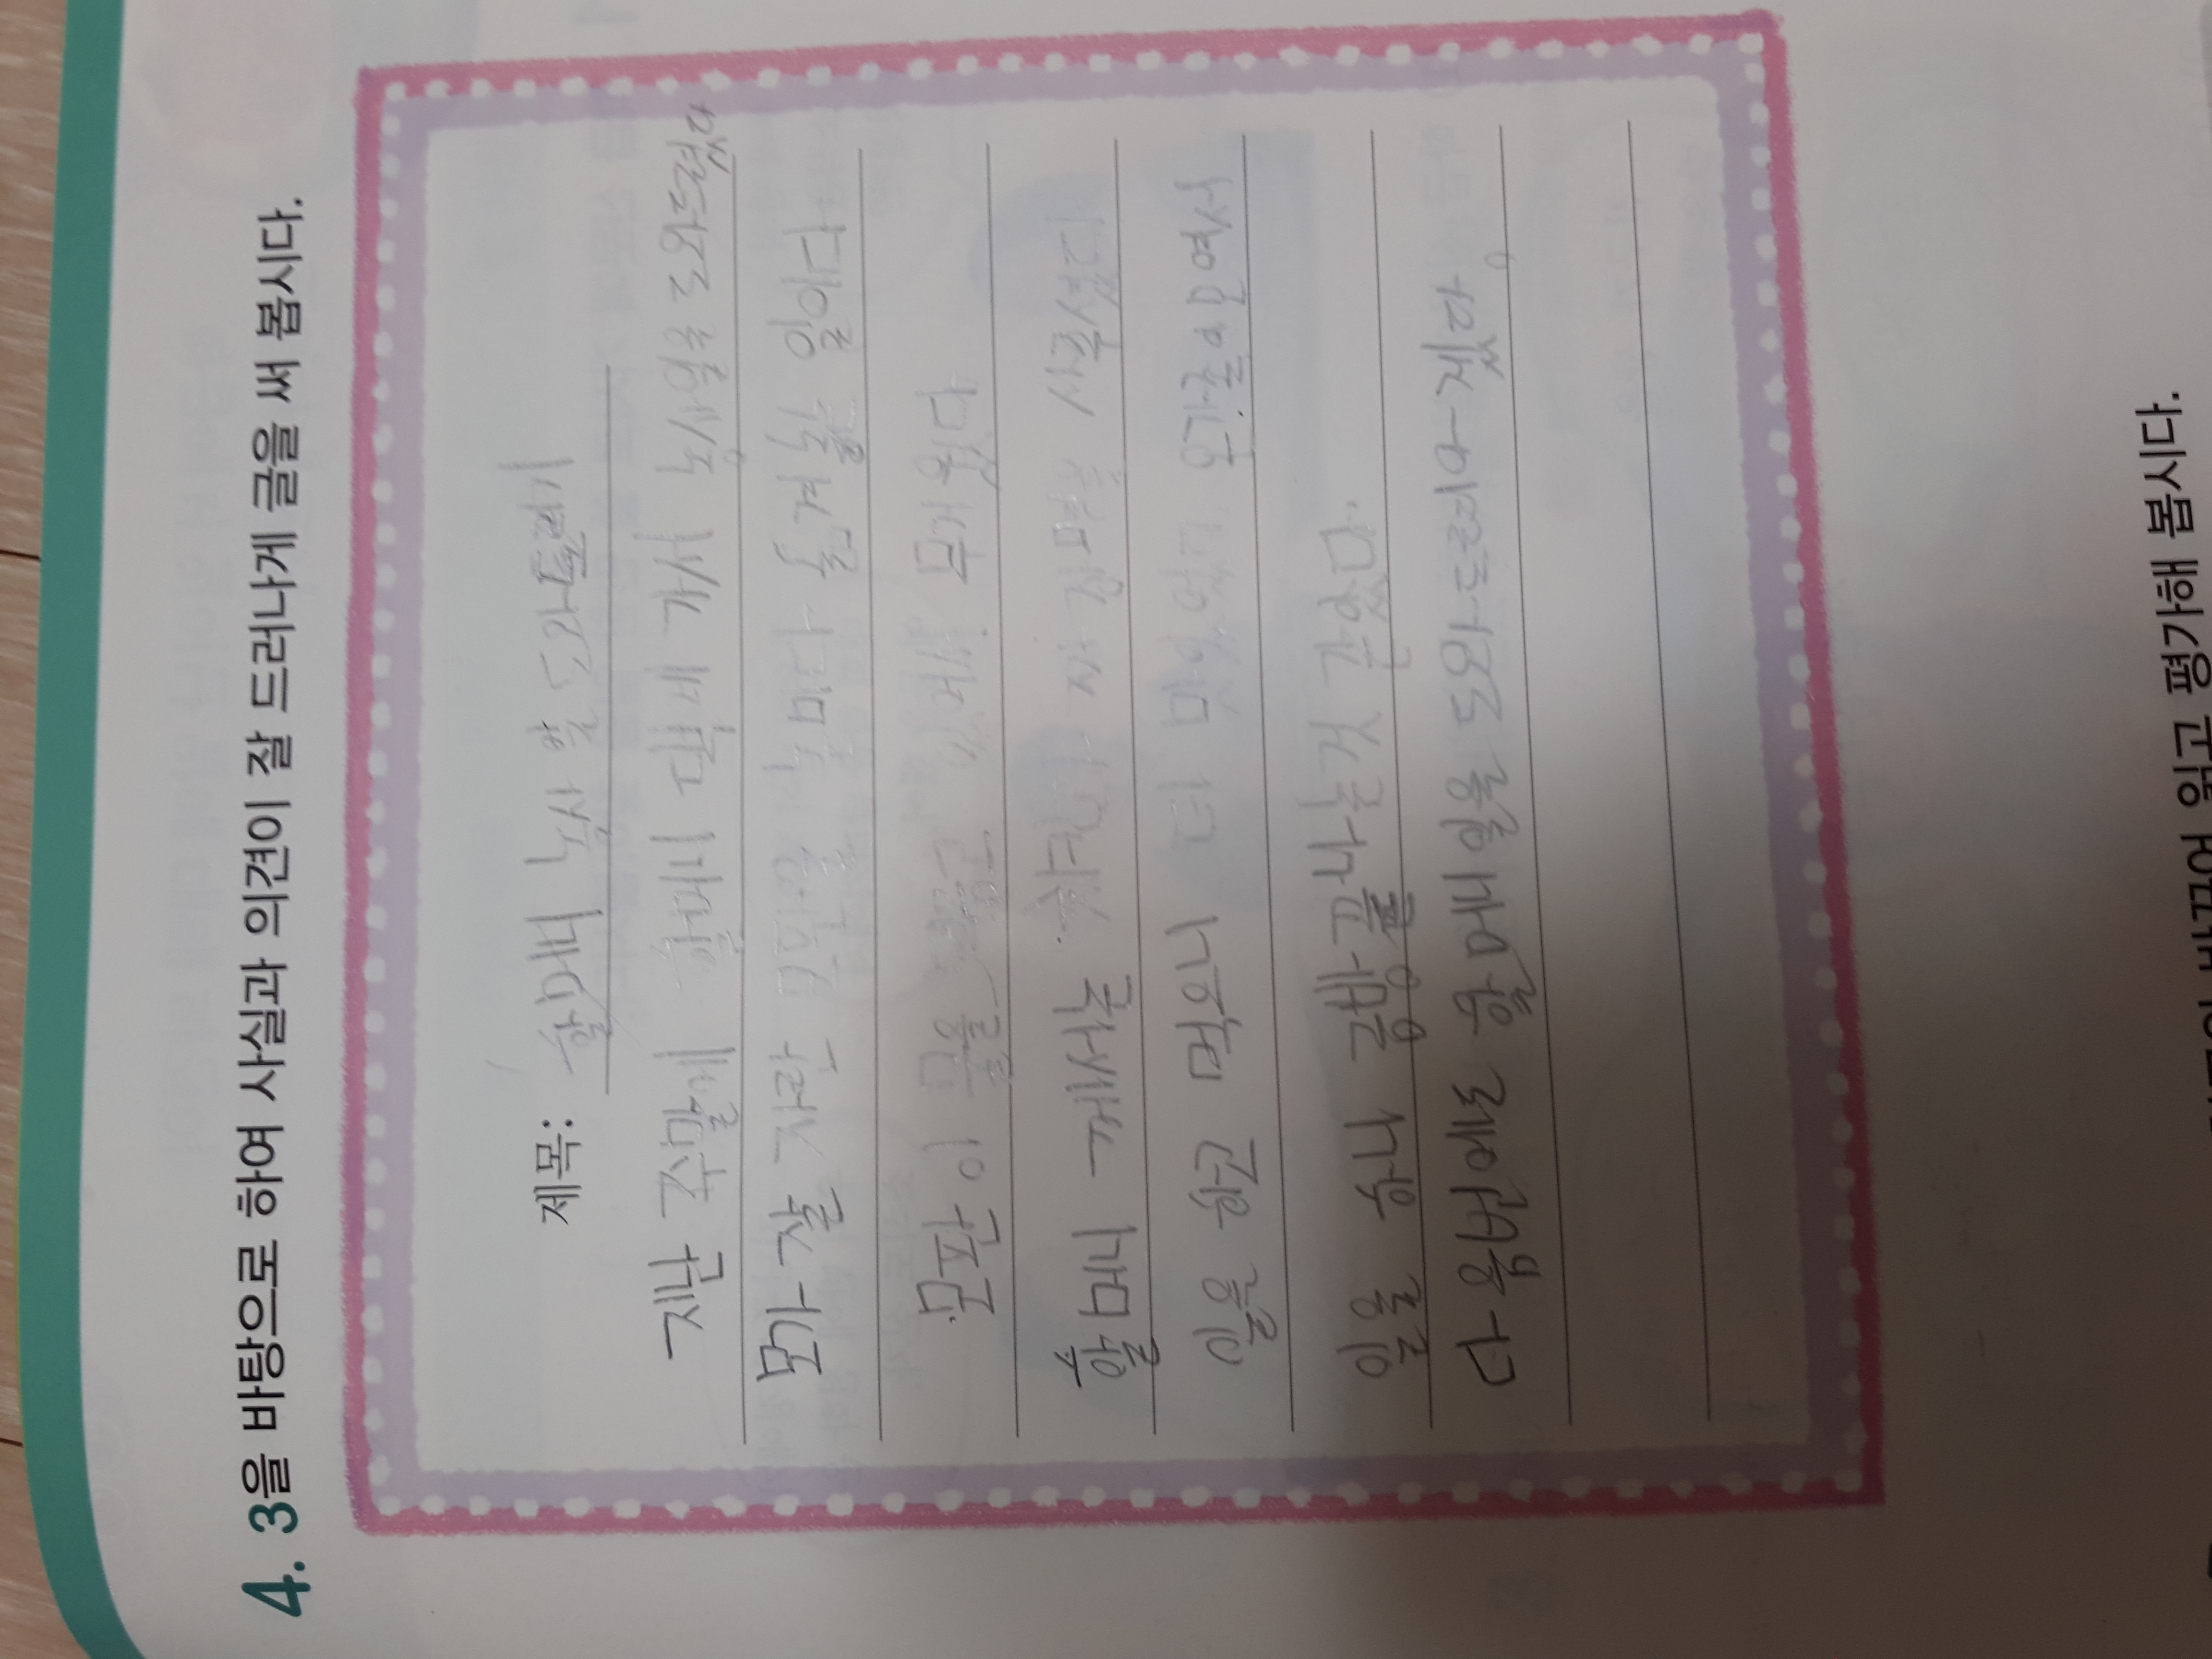 4. 3을 바탕으로 하여 사실과 의견이 잘 드러나게 글을 써 봅시다.
제목: 할머니 농사 일 도와드리기
지난 주말에 할머니 댁에 가서 농사일을 도와드렸다
모가 잘 자란 모판을 논마다 옮겨 놓는 일이다
모판이 물을 품고 있에서 무거웠다
할머니 께서는 치킨과 짜장면을 사주셨다
일을 하고 먹으니 더 맛있었다 온가족이모여서
일을 하니 금방끝나는것 같았다.
다음번에도 할머니일을 도와드려야 겠다.
바꾸어 읽고 평가해 봅시다.